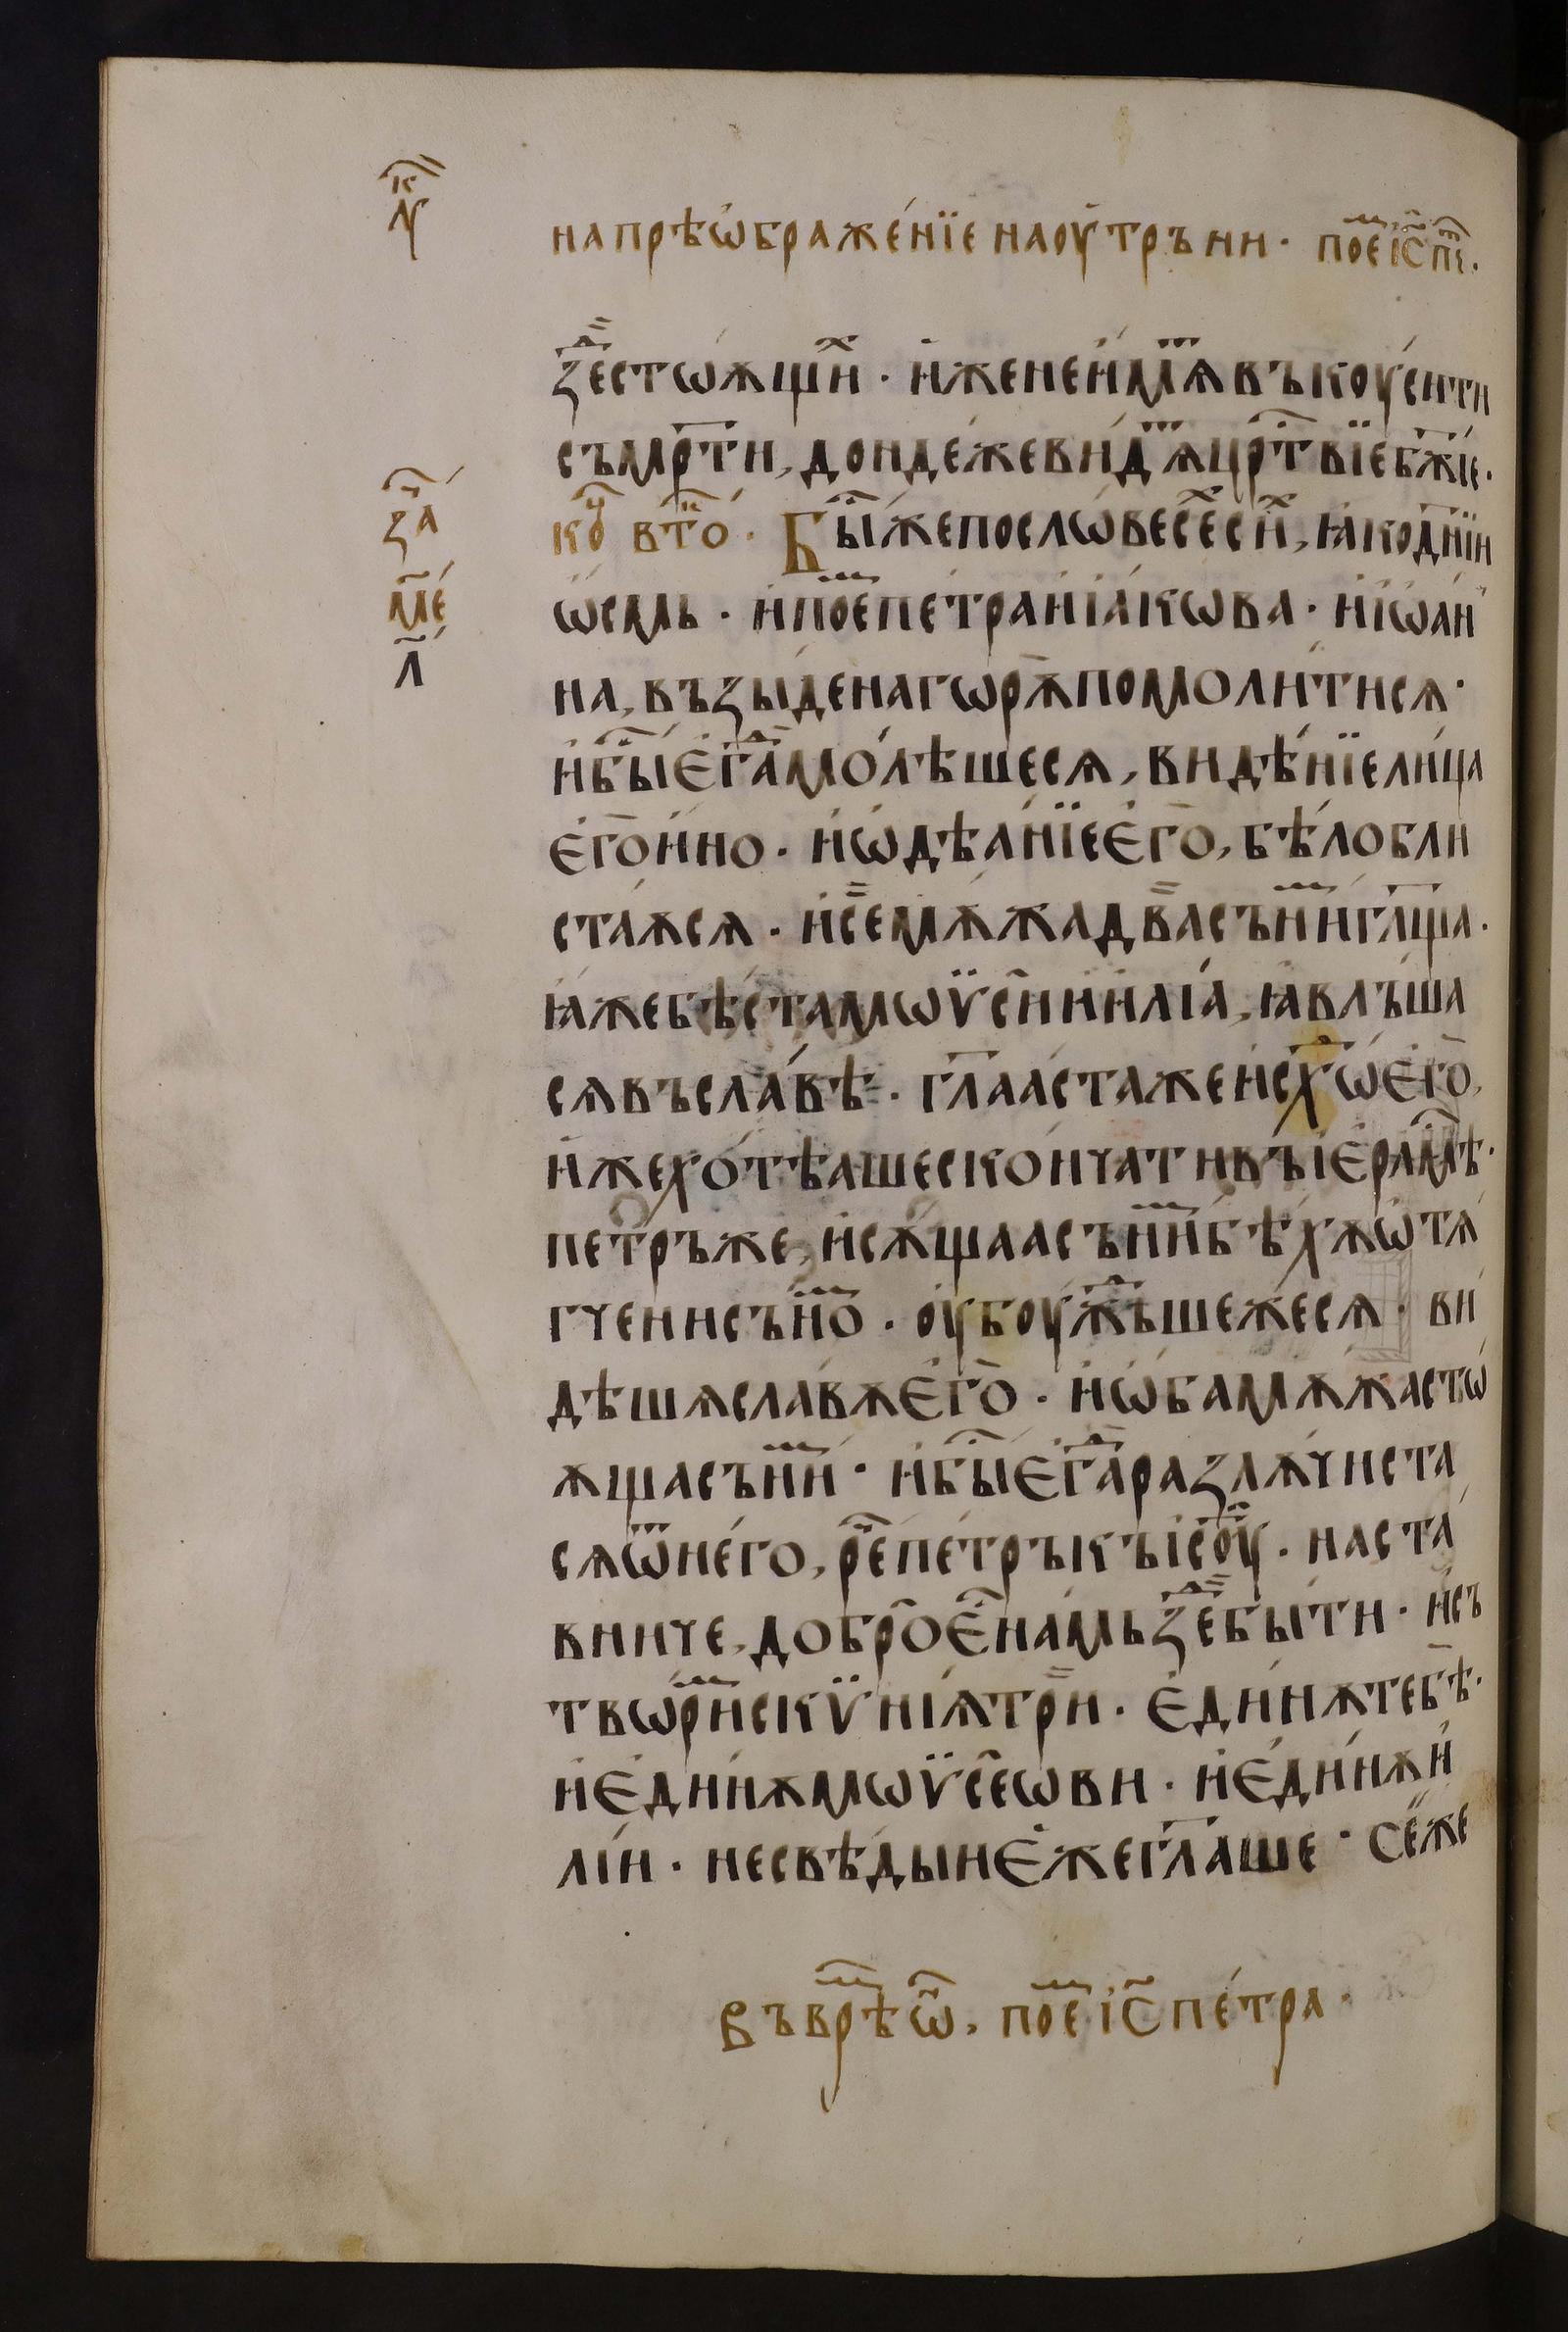 лꙋⷦ҇
на прѣѡ҆браже́нїе на ѹ҆́трънн · поеⷨ҇ і҆с̃ пеⷮ҇ ·
зⷣеⷭ҇ стѡѧщиⷯ · и҆́же не и҆́мѫⷮ въкѹ́сити
съмрⷮ҇ти, до́ндеже ви́дѧⷮ црⷭ҇твїе бж҃їе ·
коⷰ҇ втоⷦ҇ · Быⷭ҇ же по слѡвесеⷯ҇ сиⷯ, ꙗ҆ко дн҃їи
ѡ҆́смь · и҆ поеⷨ҇ пе́тра и҆ і҆а́кѡва · и҆ і҆ѡа́н
на, възы́де на гѡрѫ̀ помоли́тисѧ ·
и҆ быⷭ҇ є҆гⷣа̀ молѣ́шесѧ, видѣ́нїе лица̀
є҆го̀ и҆́но · и҆ ѡ҆дѣа́нїе є҆го̀, бѣло̀ бли
ста́ѧсѧ · и҆ се̏ мѫ́жа два̏ съ ни́мⷨ гл҃ща ·
ꙗ҆́же бѣ́ста мѡѵ̈се́и и҆ и҆лїа̀, ꙗ҆вльша
сѧ въ сла́вѣ · гл҃аста же и҆схо́ⷣ є҆го̀,
и҆́же хо́тѣаше сконча́ти въ і҆єрⷭ҇лмѣ ·
пе́тръ же, и҆ сѫ́щаа съ ни́мⷨ бѣхѫ ѡ҆тѧ
гчени съно́ⷨ · ѹ҆бѹ́жⷣьшежесѧ · ви
дѣшѧ сла́вѫ є҆го̀ · и҆ ѡ҆́ба мѫ́жа стѡ
ѧща съ ни́мⷨ · и҆ быⷭ҇ є҆гⷣа̀ разлѫчи́ста
сѧ ѿ него̀, реⷱ҇ пе́тръ къ і҆сⷭ҇ѹ · наста
вниче, добро̀ є҆́ⷭ нам̾ь зⷣѐ бы́ти · и҆ съ
твѡри́мⷨ скѵ̈нїѧ трѝ · є҆ди́нѫ тебѣ̀ ·
и҆ є҆ди́нѫ мѡѵ̈се́ѡви · и҆ є҆ди́нѫ и҆
лїи · не свѣ́дый є҆́же гл҃аше · Се́ же
заⷱ҇
ме҃
л҃
Въ врѣⷨ ѡⷩ҇, поеⷨ҇ і҆с̃ пе́тра ·